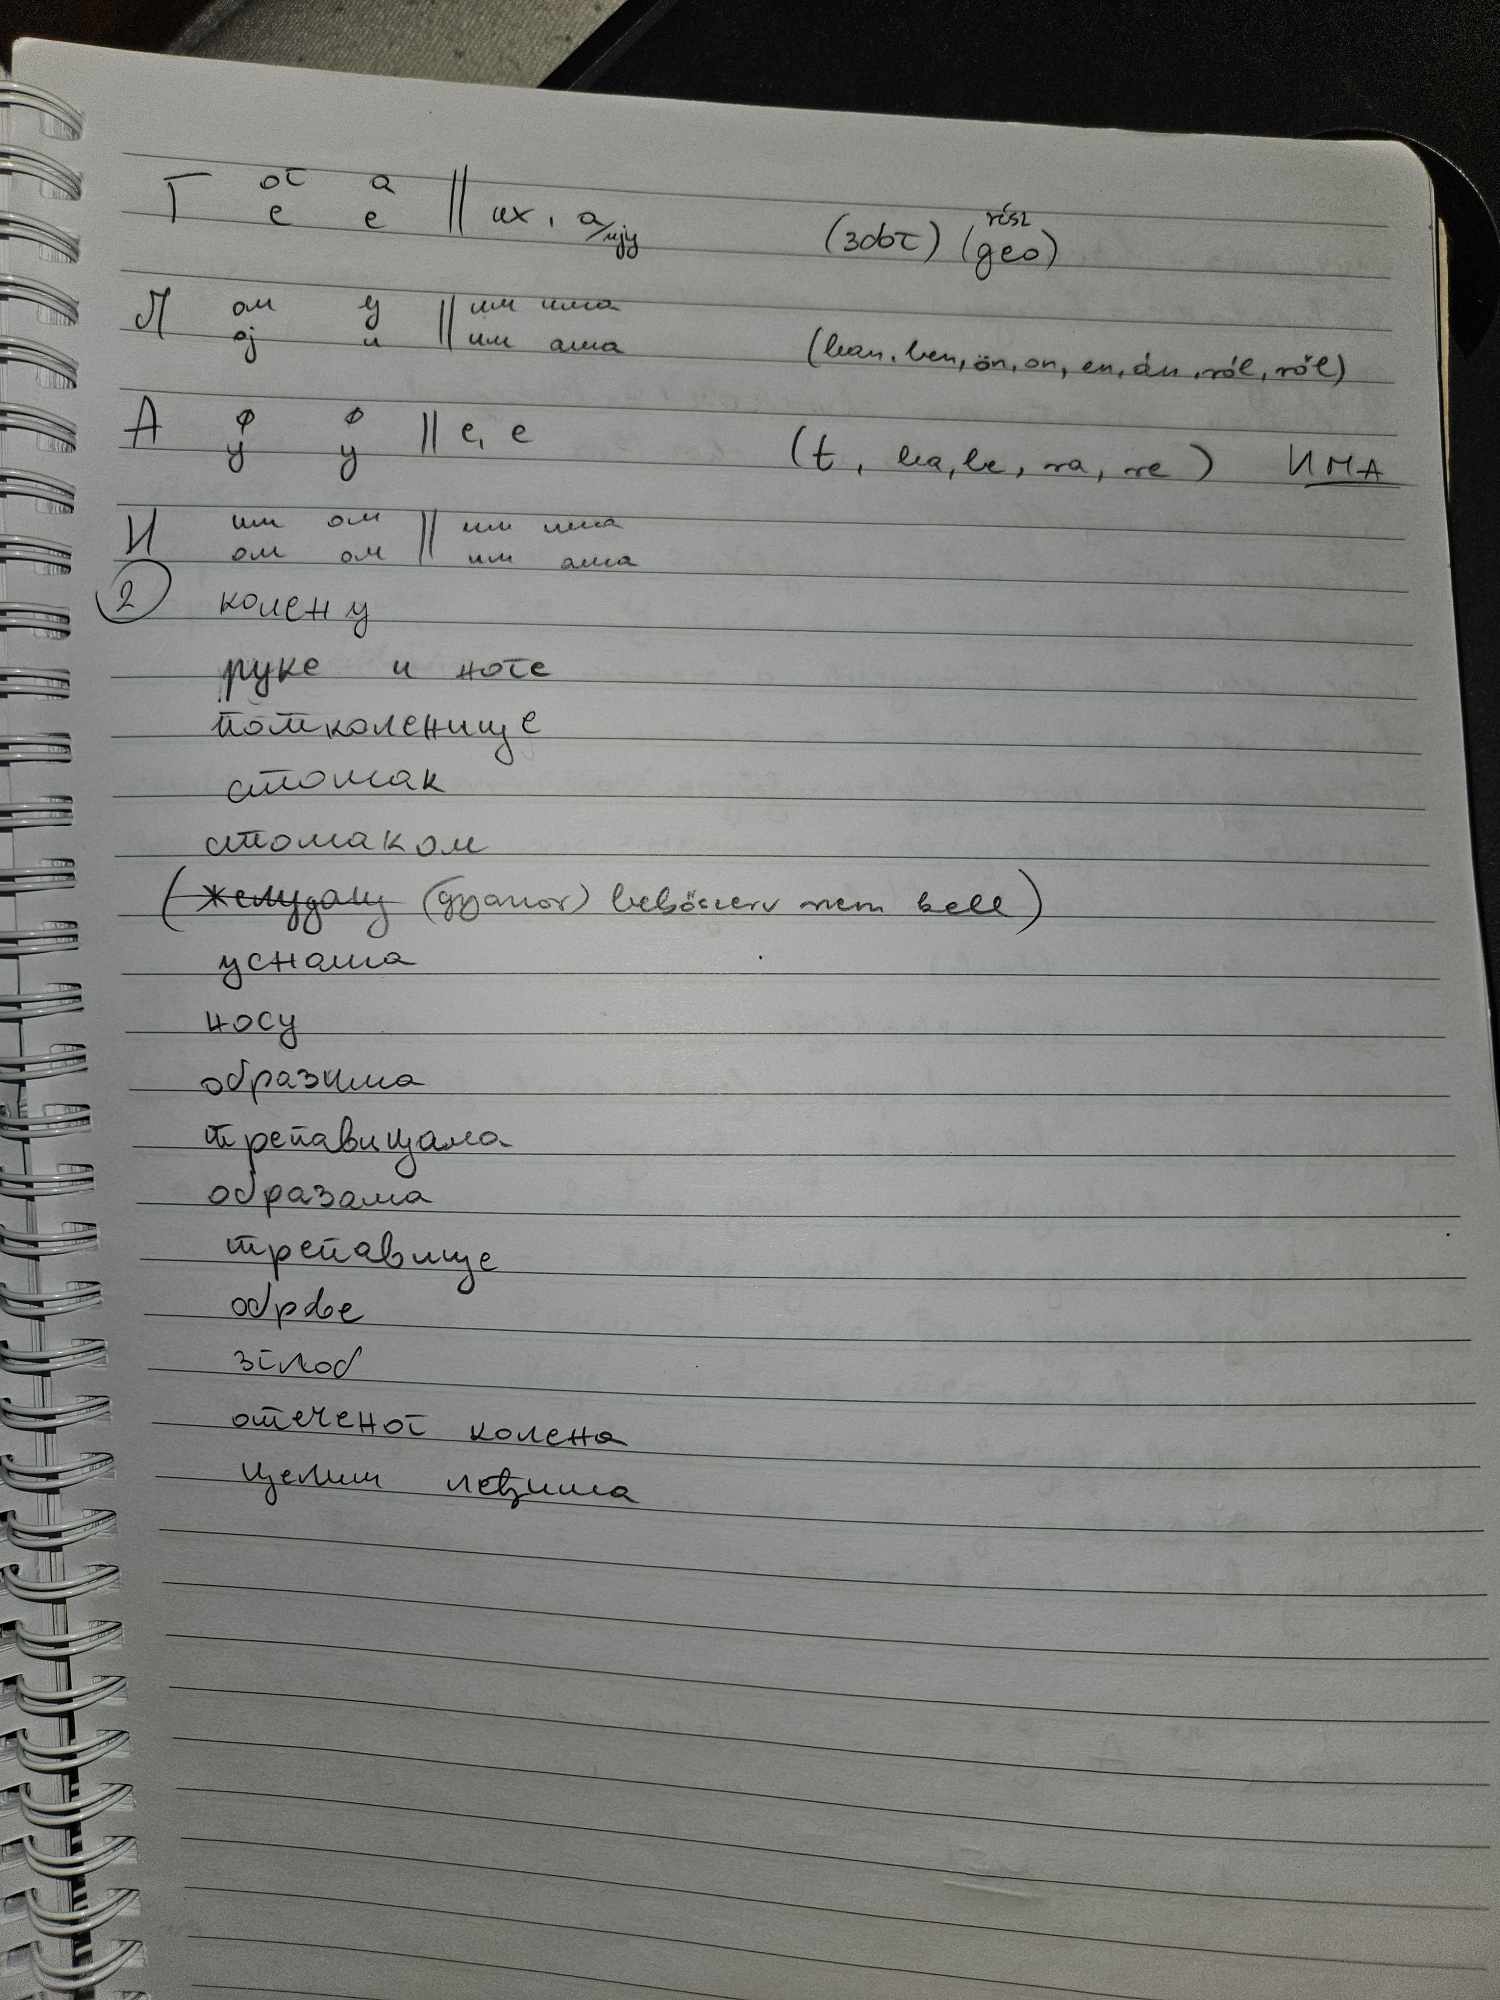 Г ог а || их, а/ију (због) (део) rész
е е
Л ом у || им има
ој и || им ама (ban, ben, ön, on, en, án, ról, ről)
А ф ф || е, е
у у (t, ba, be, ra, re) ИМА
И им ом || им има
ом ом || им ама
2 колену
руке и ноге
потколенице
стомак
стомаком
(желуданц (gyomor) nem kell)
уснама
носу
образима
трепавицама
образама
трепавице
обрве
зглоб
отеченог колена
целим леђима